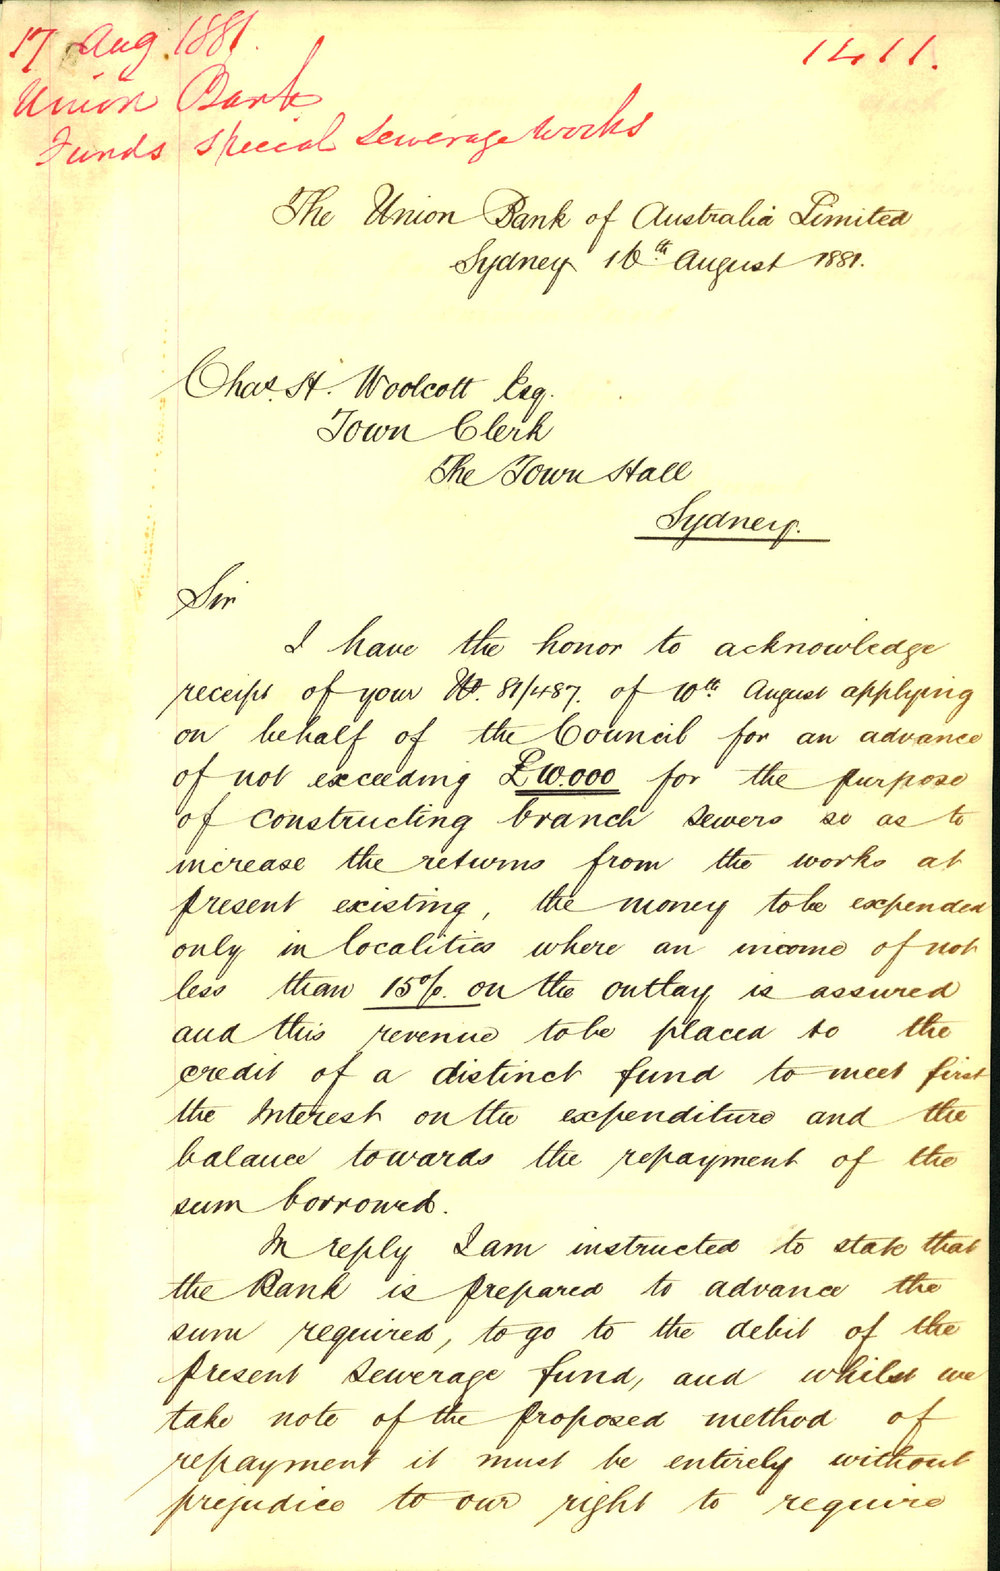 17 Aug 1881.
1411.
Union Bank
Funds special sewerage works
The Union Bank of Australia Limited
Sydney 16th August 1881.
Chas. H. Woolcott Esq.
Town Clerk
The Town Hall
Sydney.
Sir
I have the honor to acknowledge
receipt of your No. 81/487. of 10th August applying
on behalf of the Council for an advance
of not exceeding £10.000 for the purpose
of constructing branch sewers so as to
increase the returns from the works at
present existing, the money to be expended
only in localities where an income of not
less than 15%. on the outlay is assured
and this revenue to be placed to the
credit of a distinct fund to meet first
the Interest on the expenditure and the
balance towards the repayment of the
sum borrowed.
In reply I am instructed to state that
the Bank is prepared to advance the
sum required, to go to the debit of the
present Sewerage fund, and whilst we
take note of the proposed method of
repayment it must be entirely without
prejudice to our right to require